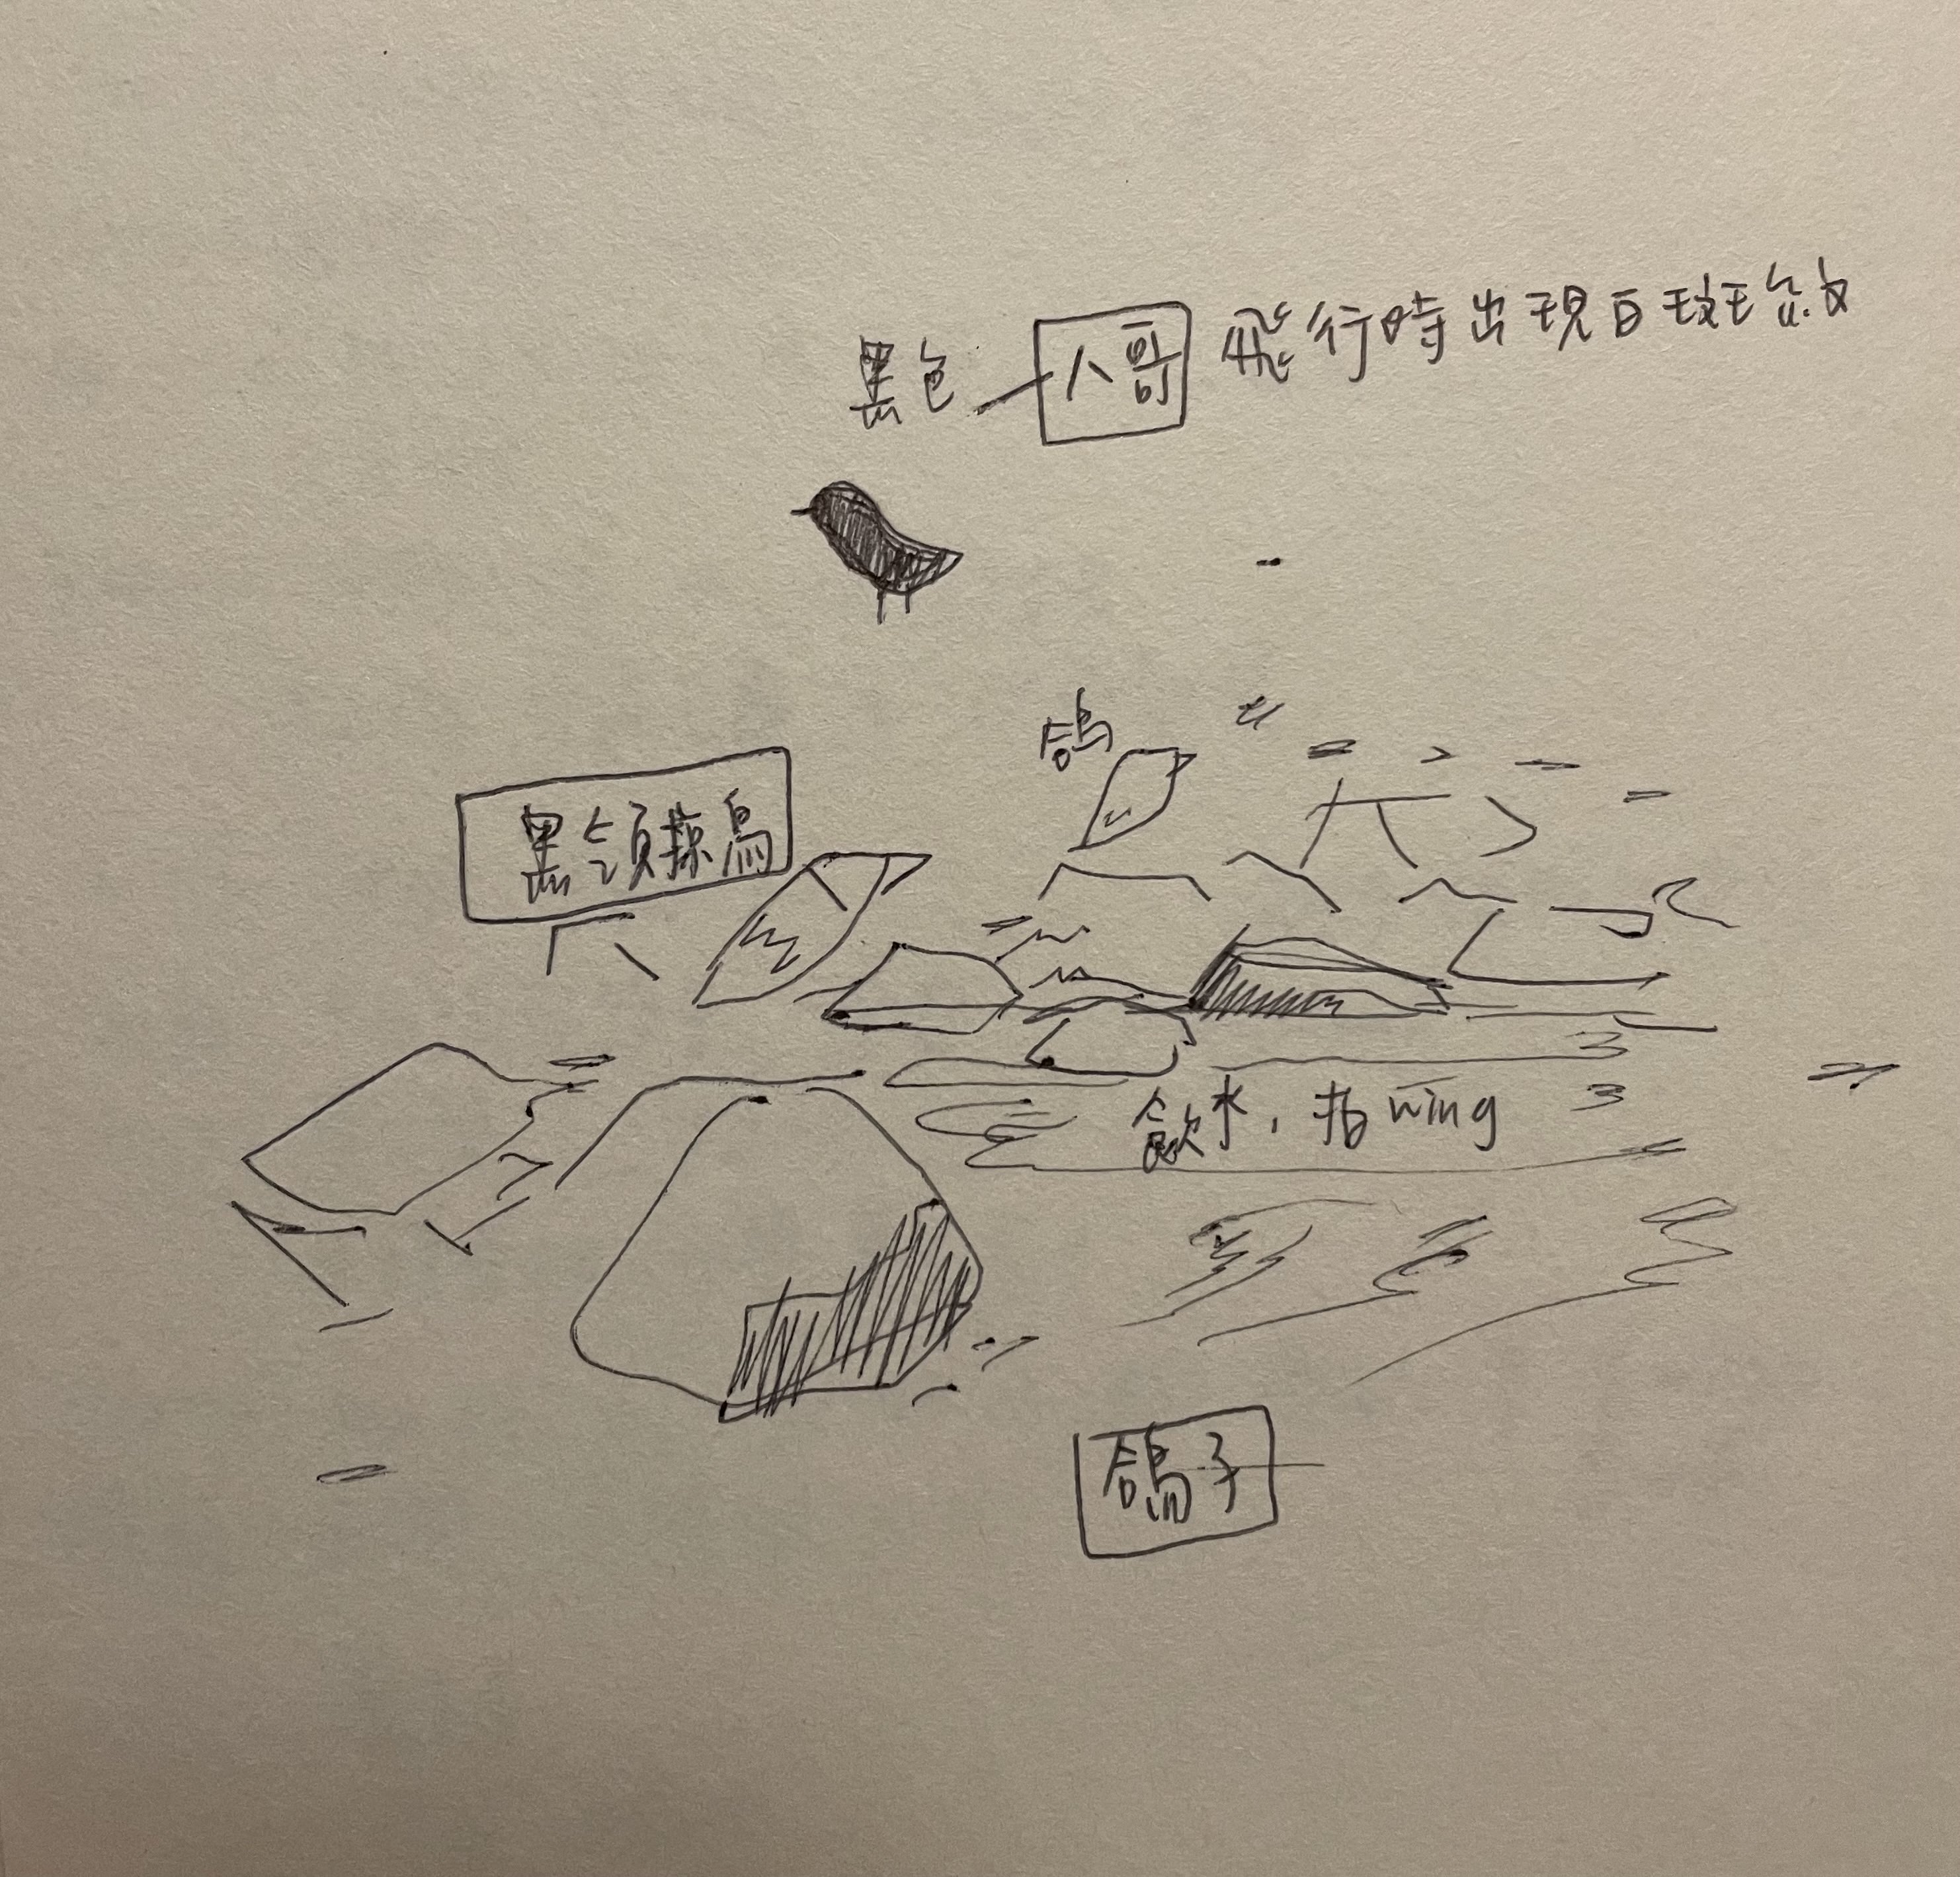 黑色 八哥 飛行時出現白斑紋
鴿
黑領掠鳥
飲水，拍wing
鴿子